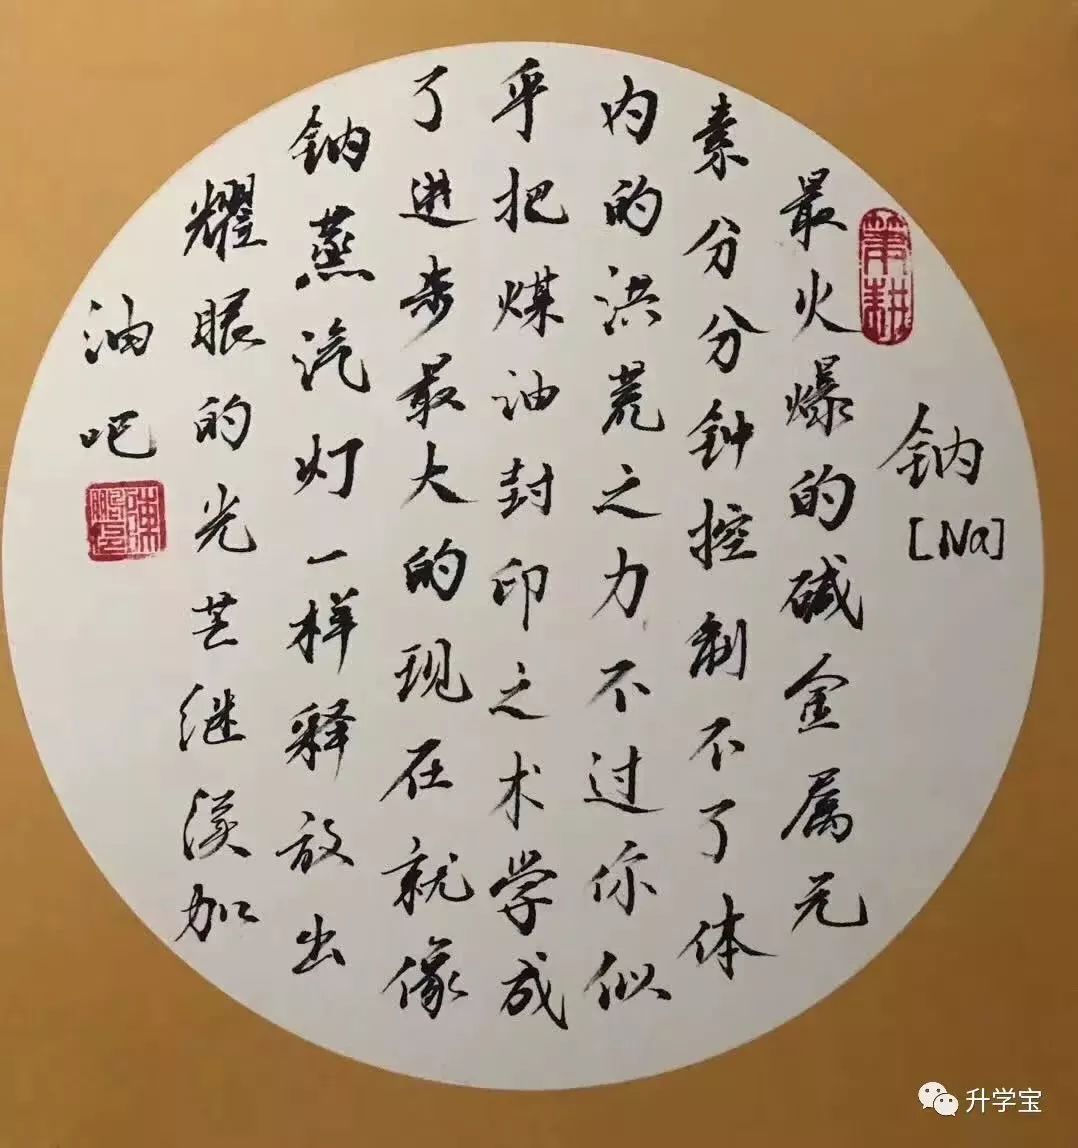 钠
[Na]
最火爆的碱金属元
素分分钟控制不了体
内的洪荒之力不过你似
乎把煤油封印之术学成
了进步最大的现在就像
钠蒸汽灯一样释放出
耀眼的光芒继续加
油吧
笔耕
升学宝